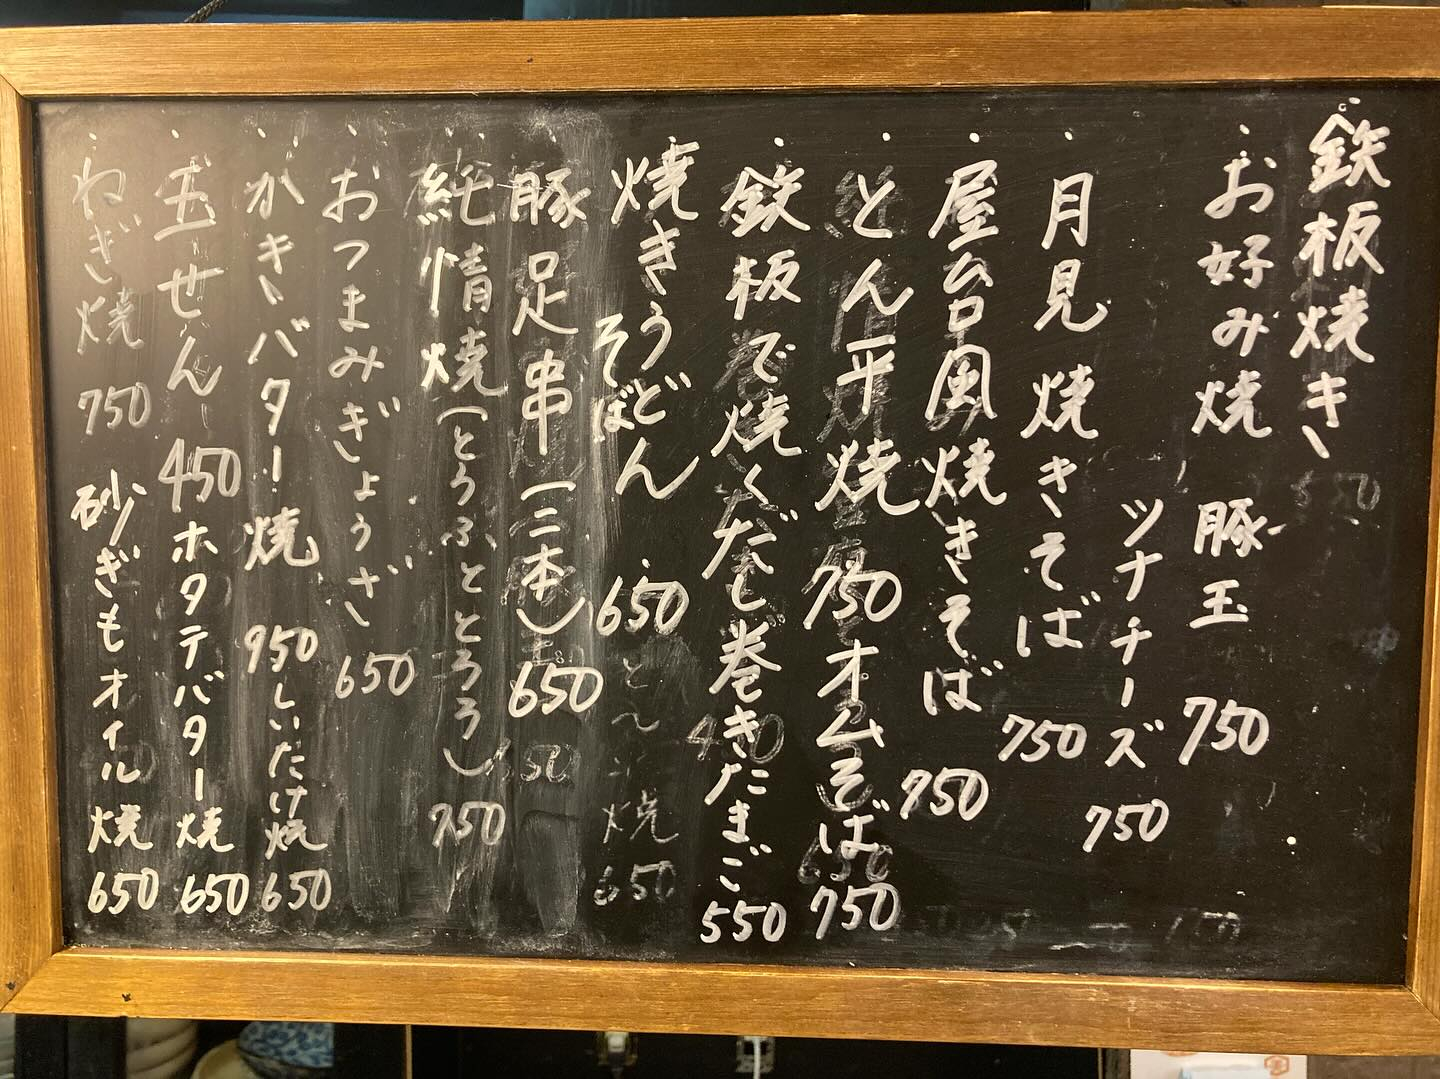 鉄板焼き
お好み焼 豚玉 750
ツナチーズ 750
月見焼きそば 750
屋台風焼きそば 750
とん平焼 750 オムそば 750
鉄板で焼くだし巻きたまご 550
焼きうどん 650
そば
豚足串(三本) 650
純情焼(とうふととろろ) 750
おつまみぎょうざ 650
かきバター焼 950 しいたけ焼 650
玉せん 450 ホタテバター焼 650
ねぎ焼 750 砂ぎもオイル焼 650